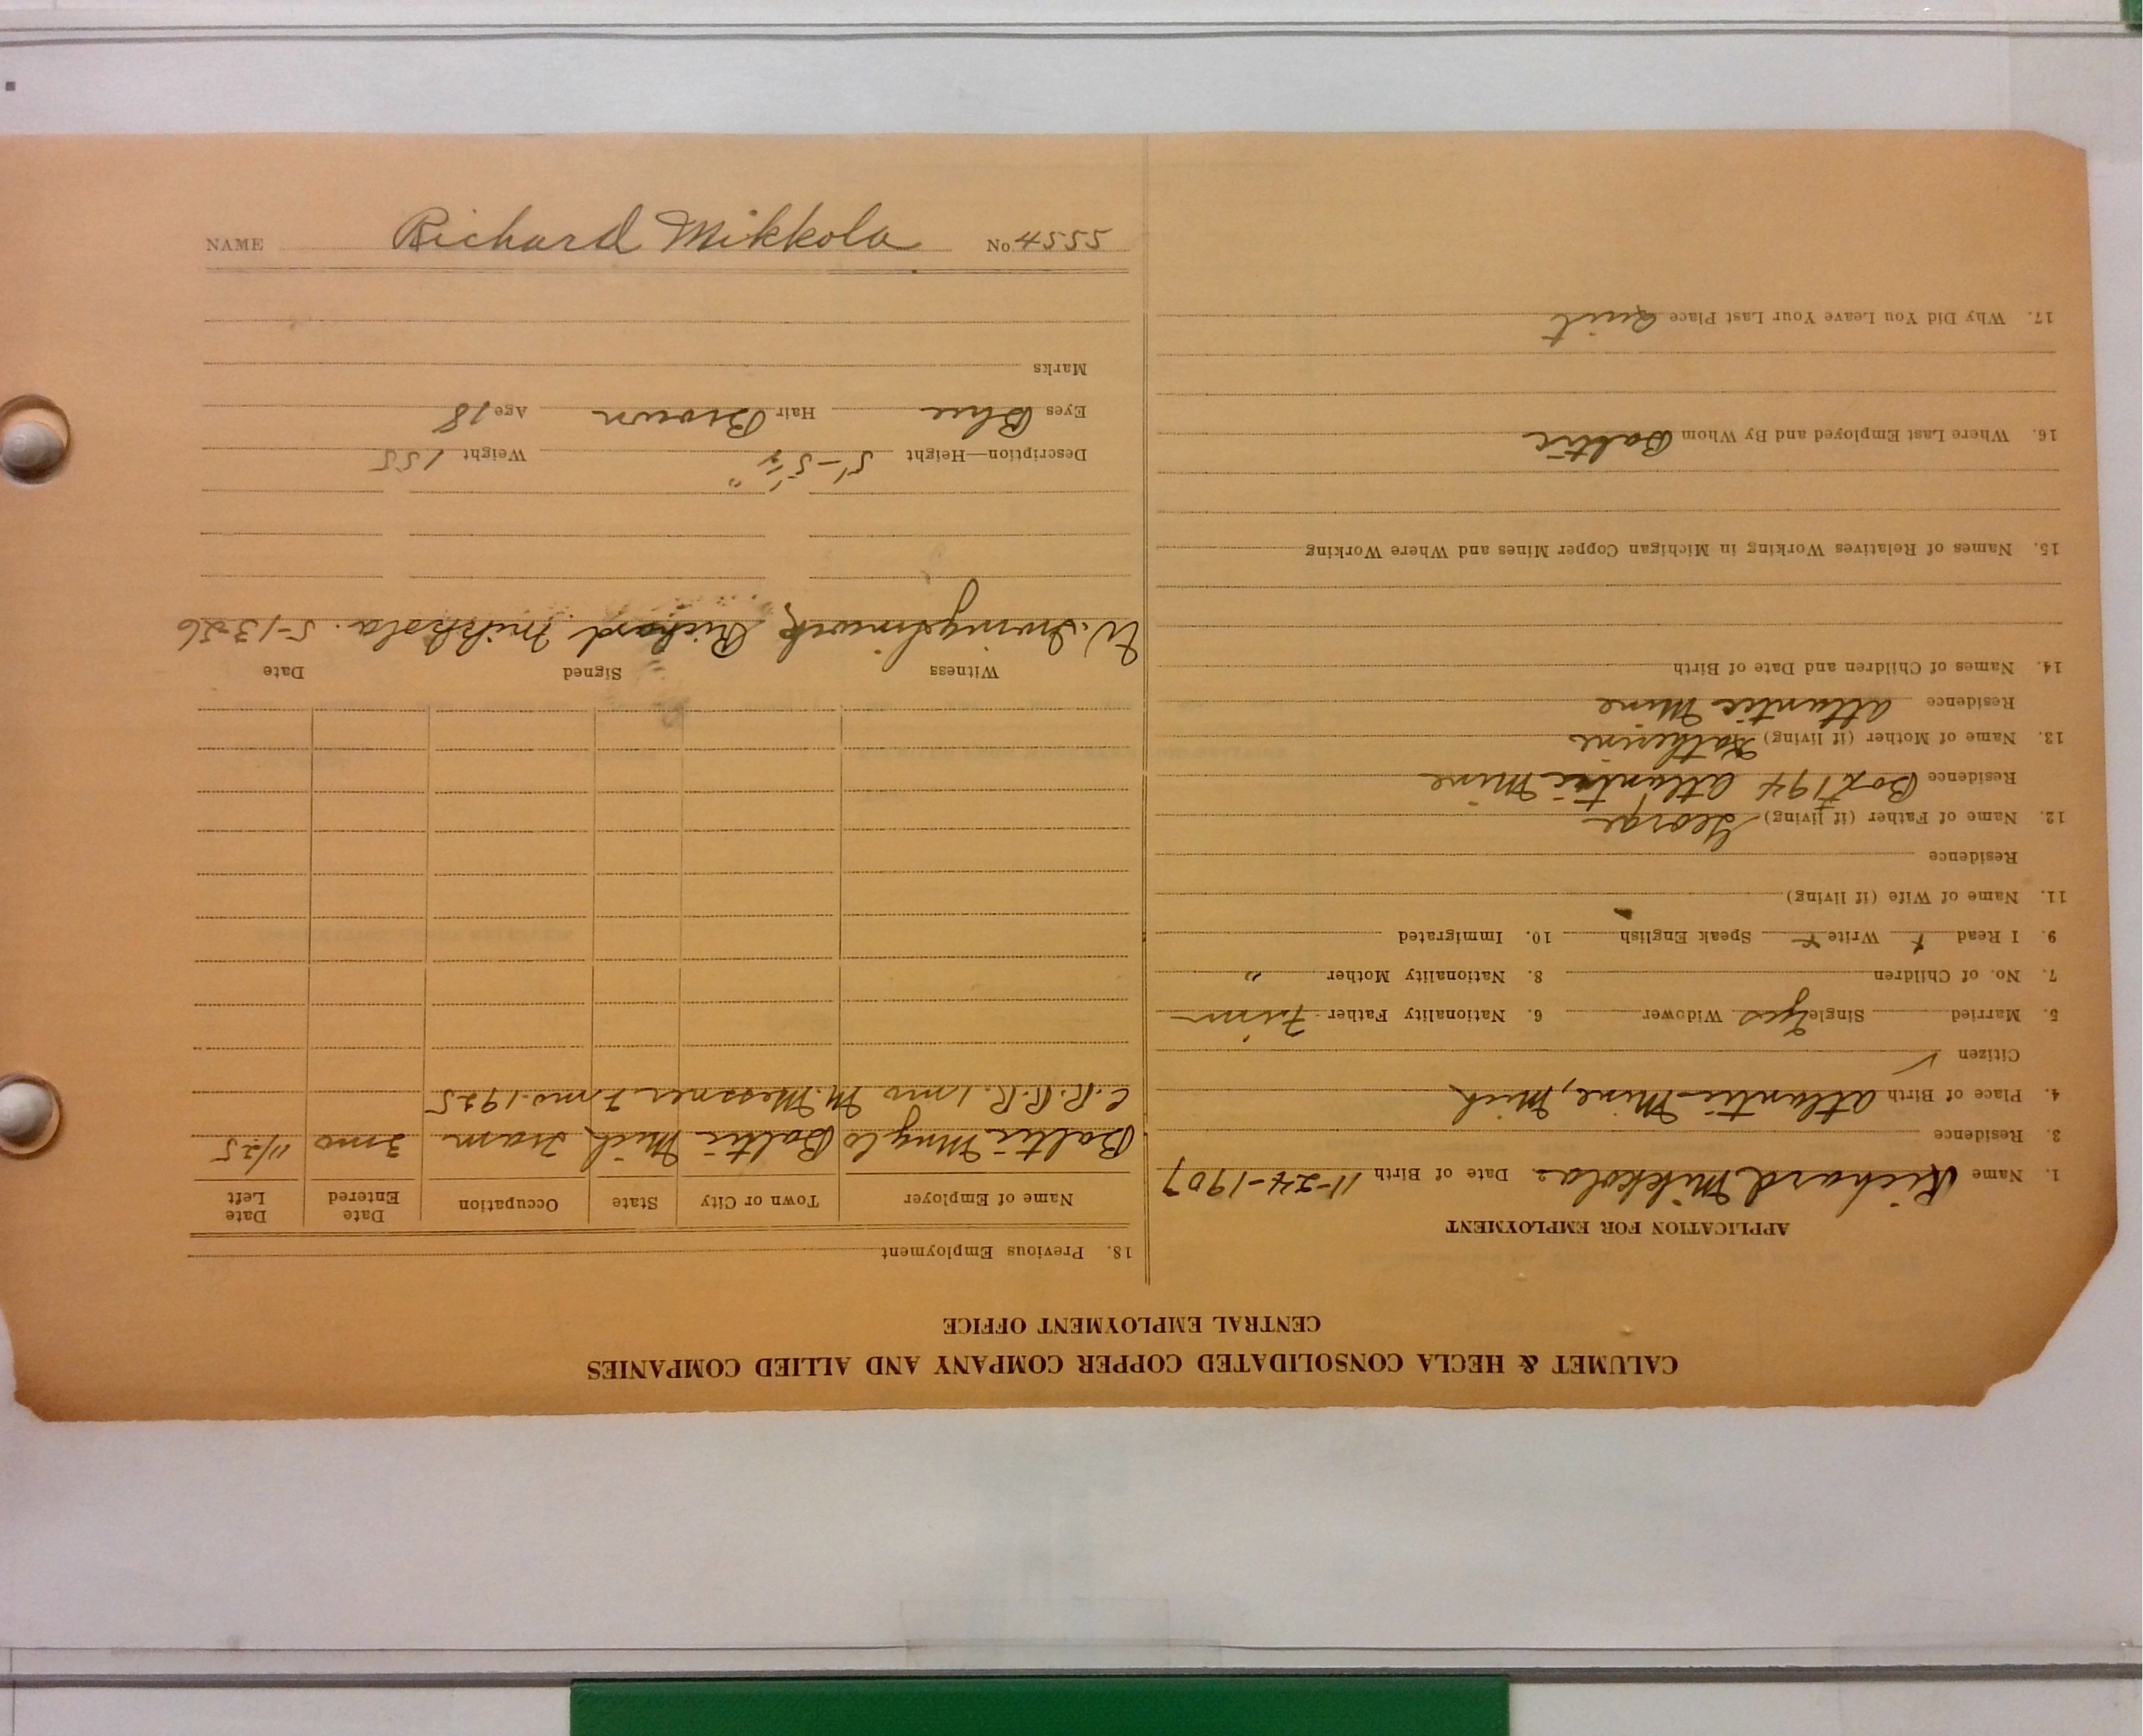 CALUMET & HECLA CONSOLIDATED COPPER COMPANY AND ALLIED COMPANIES
CENTRAL EMPLOYMENT OFFICE
APPLICATION FOR EMPLOYMENT
1. Name Richard Mikkola Date of Birth 11-24-1907
3. Residence
4. Place of Birth Atlantic Mine, Mich
Citizen ✓
5. Married Single yes Widower 6. Nationality Father Finn
7. No. of Children 8. Nationality Mother "
9. I Read x Write x Speak English 10. Immigrated
11. Name of Wife (if living)
Residence
12. Name of Father (if living) George
Residence Box 194 Atlantic Mine
13. Name of Mother (if living) Katherine
Residence Atlantic Mine
14. Names of Children and Date of Birth
15. Names of Relatives Working in Michigan Copper Mines and Where Working
16. Where Last Employed and By Whom Baltic
17. Why Did You Leave Your Last Place Quit
18. Previous Employment
Name of Employer Town or City State Occupation Date Entered Date Left
Baltic Mng Co Baltic Mich Tram 3 mo 11/25
C.R.R.R. 1 mo M. Messner 7 mo. 1925
Witness Signed Date
Richard Mikkola. 5-13-26
Description—Height 5'-5½" Weight 155
Eyes Blue Hair Brown Age 18
Marks
NAME Richard Mikkola No 4555